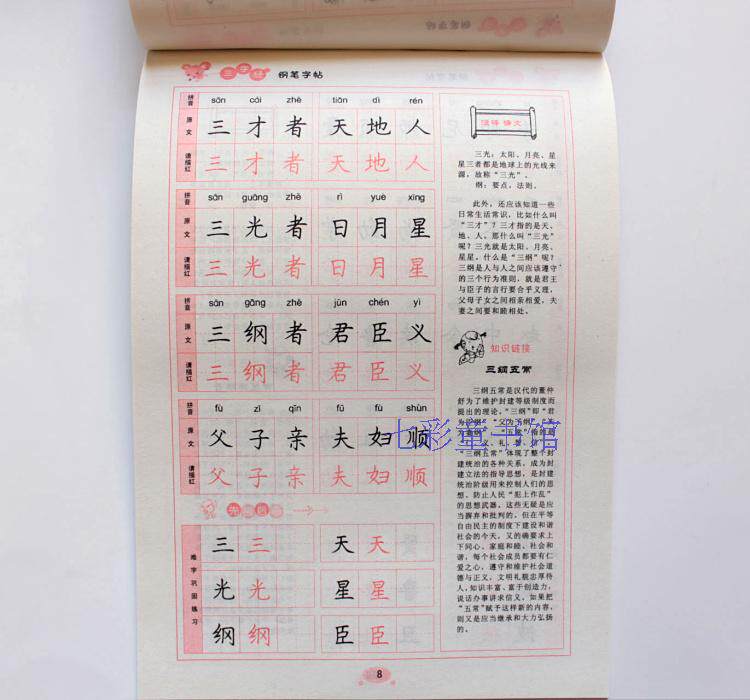 三字经 钢笔字帖
拼音 sān cái zhě tiān dì rén
原文 三才者 天地人
请描红 三才者 天地人
拼音 sān guāng zhě rì yuè xīng
原文 三光者 日月星
请描红 三光者 日月星
拼音 sān gāng zhě jūn chén yì
原文 三纲者 君臣义
请描红 三纲者 君臣义
拼音 fù zǐ qīn fū fù shùn
原文 父子亲 夫妇顺
请描红 父子亲 夫妇顺
难字巩固练习
三 三 天 天
光 光 星 星
纲 纲 臣 臣
三光：太阳、月亮、星
星三者都是地球上的光线来
源，故称“三光”。
纲：要点，法则。
此外，还应该知道一些
日常生活常识，比如什么叫
“三才”？三才指的是天、
地、人。那什么叫“三光”
呢？三光就是太阳、月亮、
星星。什么是“三纲”呢？
三纲是人与人之间应该遵守
的三个行为准则，就是君王
与臣子的言行要合乎义理，
父母子女之间相亲相爱，夫
妻之间要和睦相处。
知识链接
三纲五常
三纲五常是汉代的董仲
舒为了维护封建等级制度而
提出的理论。“三纲”即“君
“三纲五常”体现了整个封
建统治的各种关系，成为封
建立法的指导思想，是封建
统治阶级用来控制人们的思
想，防止人民“犯上作乱”
的思想武器。这些无疑是应
当摒弃和批判的，但在平等
自由民主的制度下建设和谐
社会的今天，又的确要求上
下同心、家庭和睦、社会和
谐，每个社会成员都要有仁
爱之心，遵守和维护社会道
德与正义，文明礼貌忠厚待
人，知识丰富、富于创造力，
说话办事讲求信义。如果把
“五常”赋予这样新的内容，
则又是应当继承和大力弘扬
的。
七彩童书馆
8